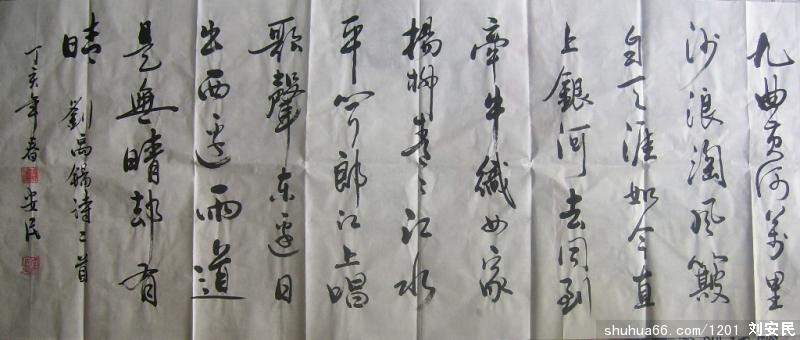 九曲黄河萬里
沙浪淘風簸
自天涯如今直
上銀河去同到
牽牛織女家
楊柳青々江水
平聞郎江上唱
歌聲東邊日
出西邊雨道
是無晴却有
晴
劉禹錫詩二首
丁亥年春 安民
shuhua66.com/1201 刘安民